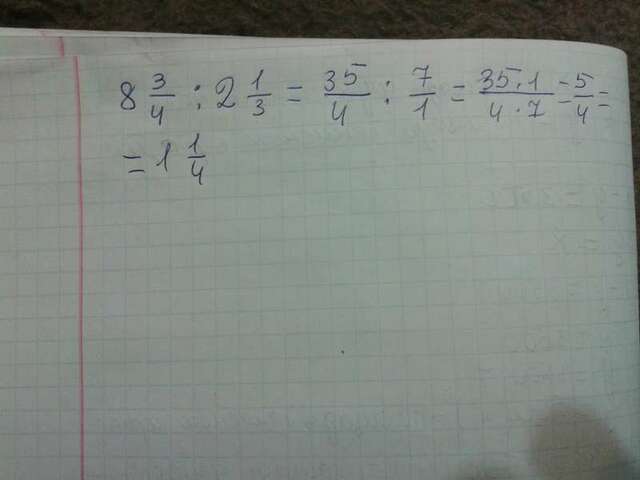 8 3/4 : 2 1/3 = 35/4 : 7/1 = 35·1/4·7 = 5/4 =
= 1 1/4